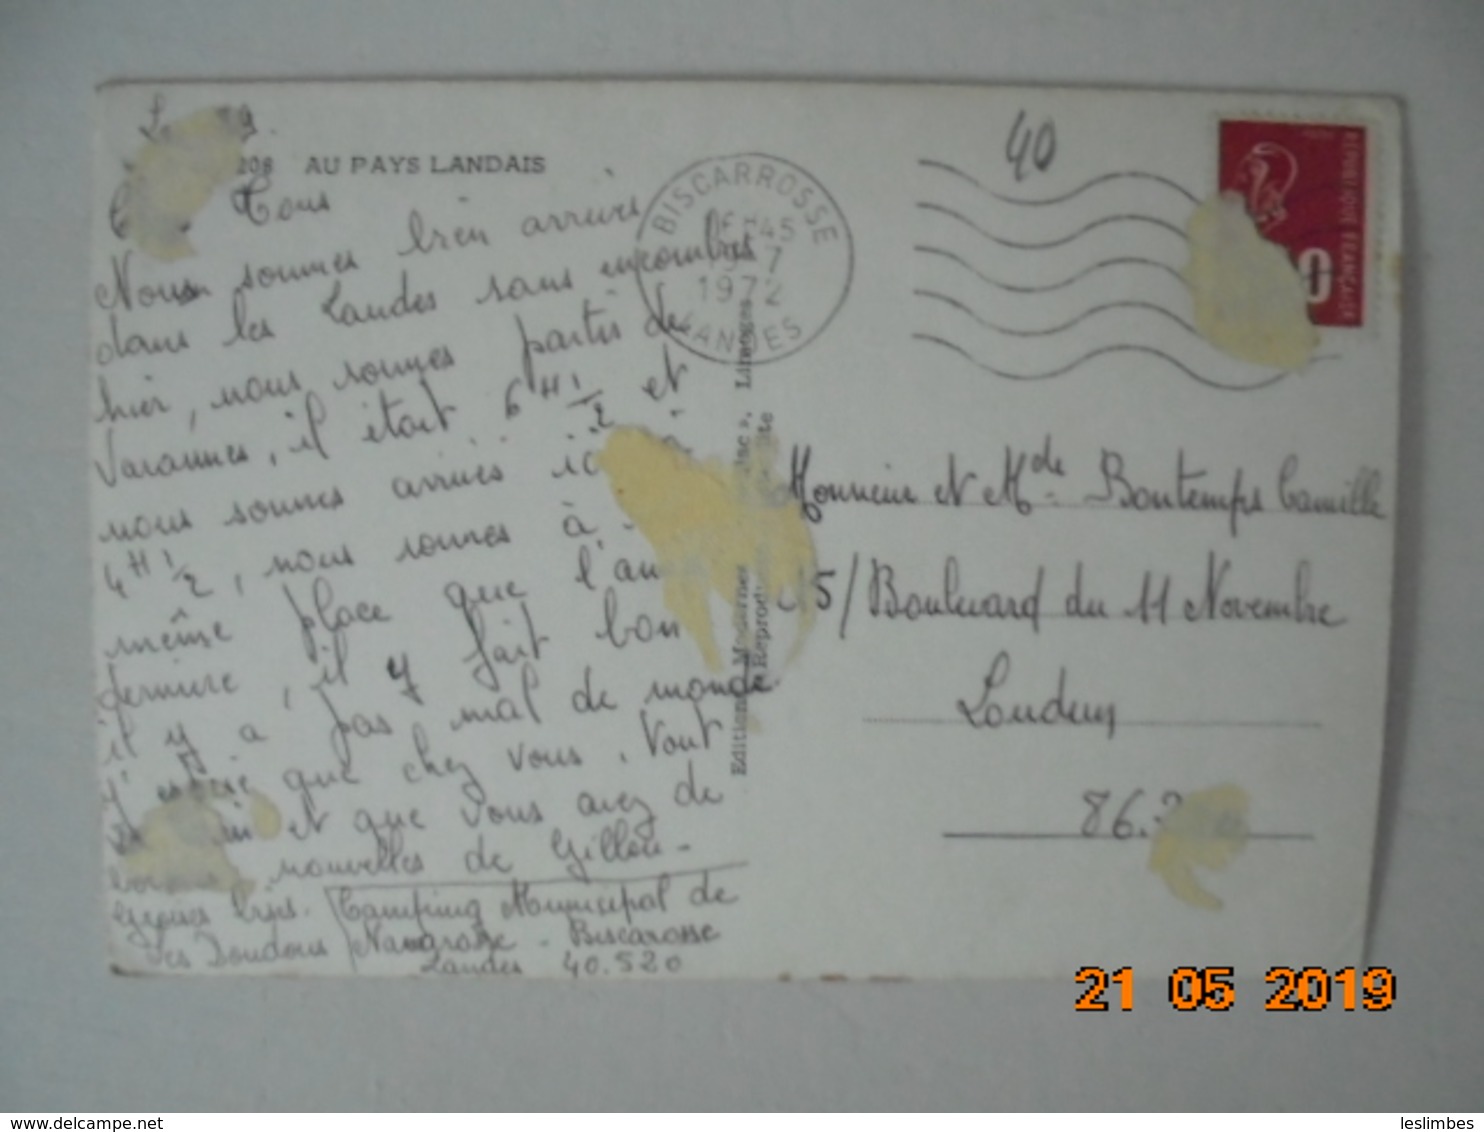 208 AU PAYS LANDAIS
Tous
Nous sommes bien arrivés
dans les Landes sans encombres
hier, nous sommes partis de
Varannes, il était 6 H 1/2 et
nous sommes arrivés ici à
4 H 1/2, nous sommes à
même place que l'an
dernière, il y fait bon
il y a pas mal de monde
J' que chez vous. Vont
et que vous avez de
nouvelles de Gillou.
Grosses bises.
Les Doudous
Camping Municipal de
Navarosse - Biscarosse
Landes 40.520
BISCARROSSE
45
7
1972
LANDES
40
REPUBLIQUE FRANÇAISE
0
Limoges
Editions Modernes
Reprodu
Monsieur et Mde Bontemps Camille
15/ Boulevard du 11 Novembre
Loudun
86.
21 05 2019
www.delcampe.net
leslimbes